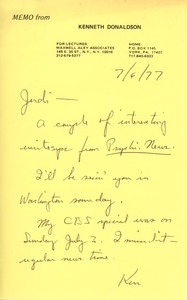 MEMO from
KENNETH DONALDSON
FOR LECTURES:
MAXWELL ALEY ASSOCIATES
145 E. 35 ST., N.Y., N.Y. 10016
212-679-5377
HOME:
P.O. BOX 1143
YORK, PA. 17401
7/6/77
Judi—
A couple of interesting
writeups from Psychi. News.
I'll be seein' you in
Washington someday.
My CBS special was on
Sunday July 3. 2 minutes—
regular news time.
Ken